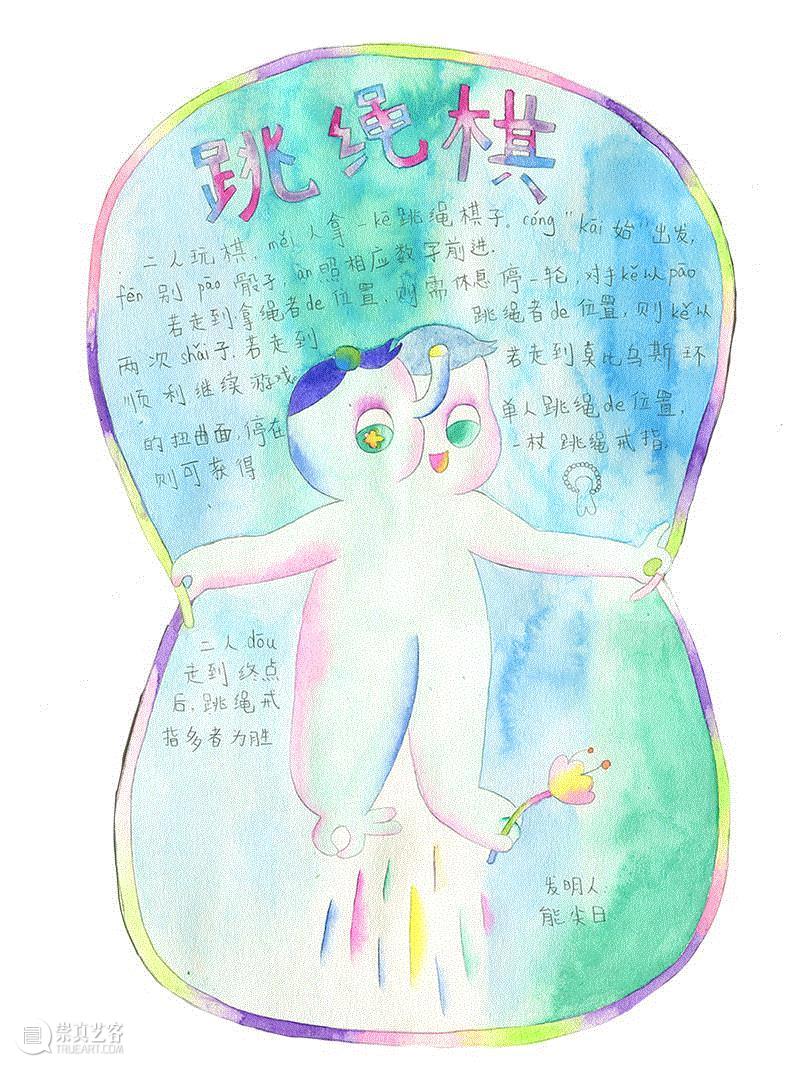 跳绳棋
二人玩棋,měi人拿一kē跳绳棋子。cóng“kāi始”出发,
fēn别pāo骰子,àn照相应数字前进.
若走到拿绳者de位置,则需休息停一轮,对手kě以pāo
两次shǎi子.若走到跳绳者de位置,则kě以
顺利继续游戏。若走到莫比乌斯环
的扭曲面,停在单人跳绳de位置,
则可获得一枚跳绳戒指.
二人dōu
走到终点
后,跳绳戒
指多者为胜
发明人:
能尖日
崇真艺客
TRUEART.COM